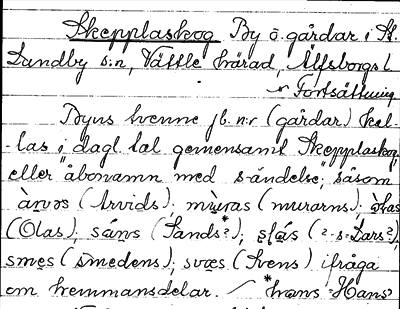 Skepplaskog By ö. gårdar i St.
Lundby s:n, Vättle härad, Älfsborgs l.
Fortsättning.
Byns tvenne jb. n:r (gårdar) kal-
-las i dagl. tal gemensamt "Skepplaskog,"
eller "åbonamn med s-ändelse", såsom
(Arvids); (murarns);
(Olas); (Sands?*); (?-s-Lars?),
smẹs (smedens), (Svens) ifråga
om hemmansdelar. — * hans "Hans"